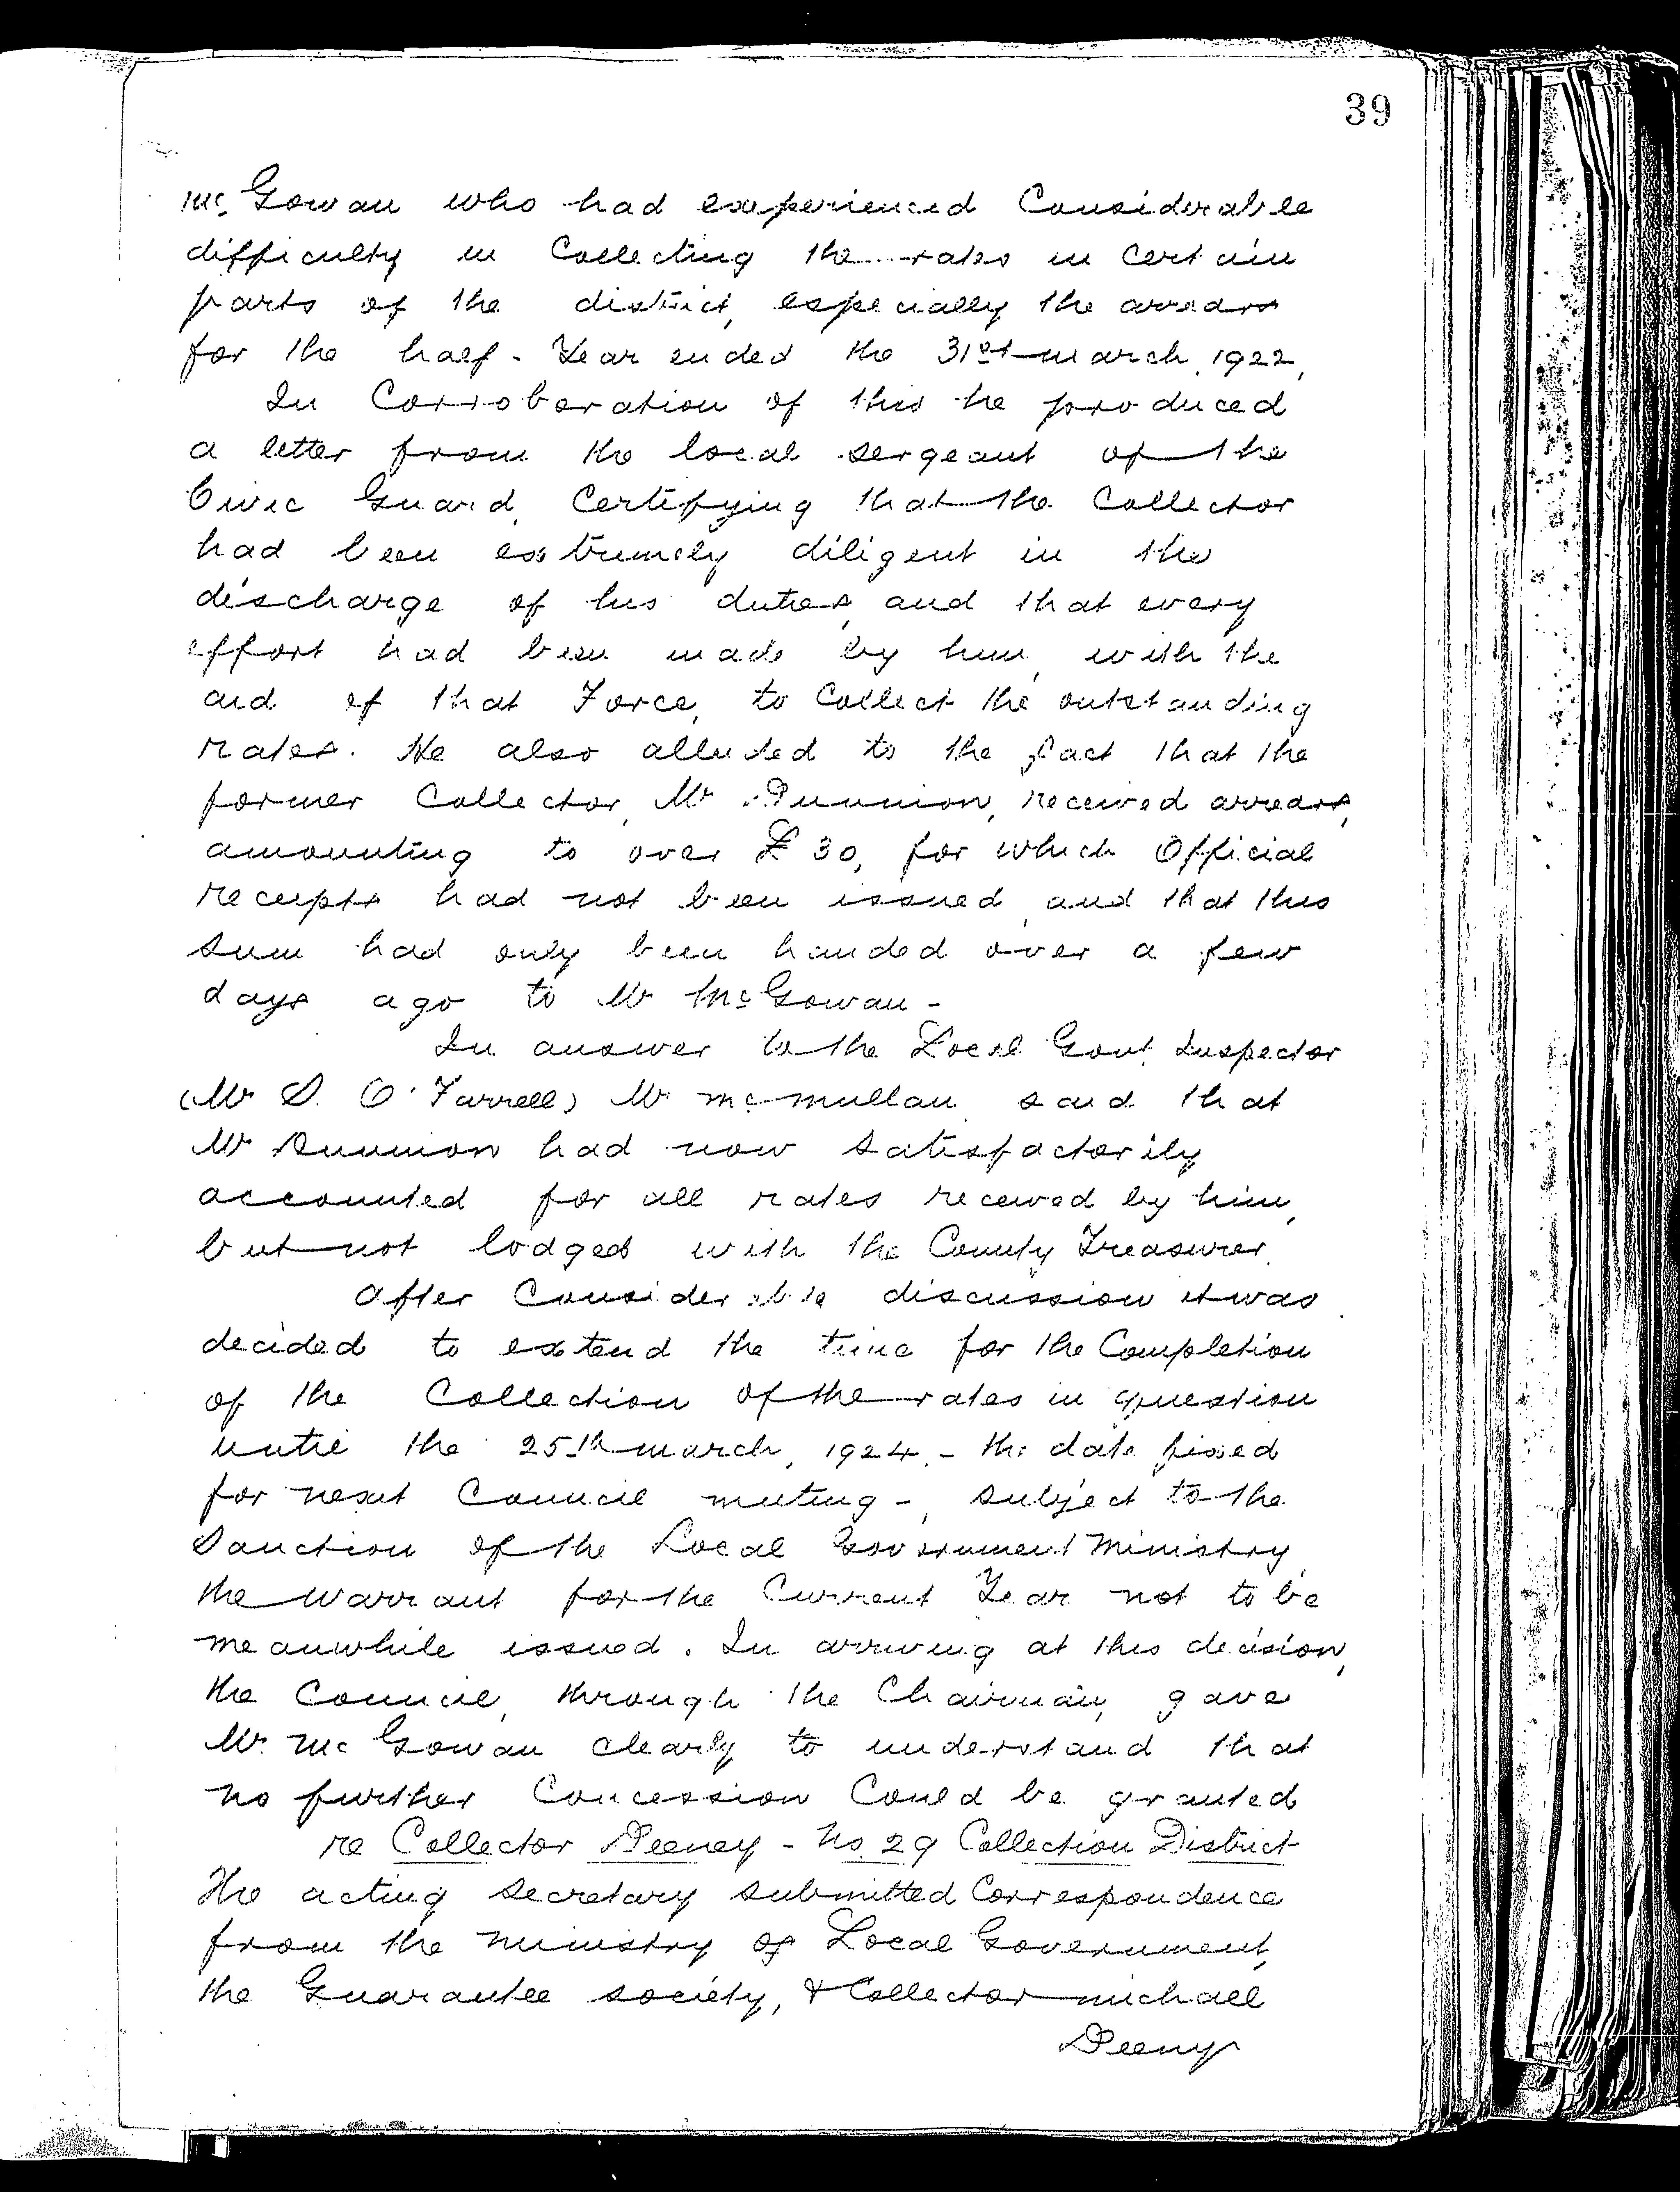 39
Mc Gowan who had experienced Considerable
difficulty in Collecting the rates in certain
parts of the district, especially the arrears
for the half-Year ended the 31st March, 1922,
In Corroboration of this he produced
a letter from the local sergeant of the
Civic Guard, Certifying that the Collector
had been extremely diligent in the
discharge of his duties, and that every
effort had been made by him, with the
aid of that Force, to Collect the outstanding
rates. He also alluded to the fact that the
former Collector, Mr Dunnion, received arrears,
amounting to over £30, for which Official
receipts had not been issued, and that this
sum had only been handed over a few
days ago to Mr McGowan -
In answer to the Local Govt. Inspector
(Mr D. O'Farrell) Mr McMullan said that
Mr Dunnion had now satisfactorily
accounted for all rates received by him,
but not lodged with the County Treasurer.
After Considerable discussion it was
decided to extend the time for the Completion
of the Collection of the rates in question
until the 25th March, 1924, - the date fixed
for next Council meeting -, subject to the
Sanction of the Local Government Ministry,
the warrant for the Current Year not to be
meanwhile issued. In arriving at this decision,
the Council, through the Chairman, gave
Mr. McGowan clearly to understand that
no further Concession Could be granted
re Collector Deeney - No. 29 Collection District
The acting secretary submitted Correspondence
from the Ministry of Local Government,
the Guarantee society, & Collector Michael
Deeny